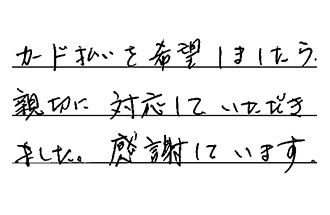 カード払いを希望しましたら、
親切に対応していただき
ました。感謝しています。